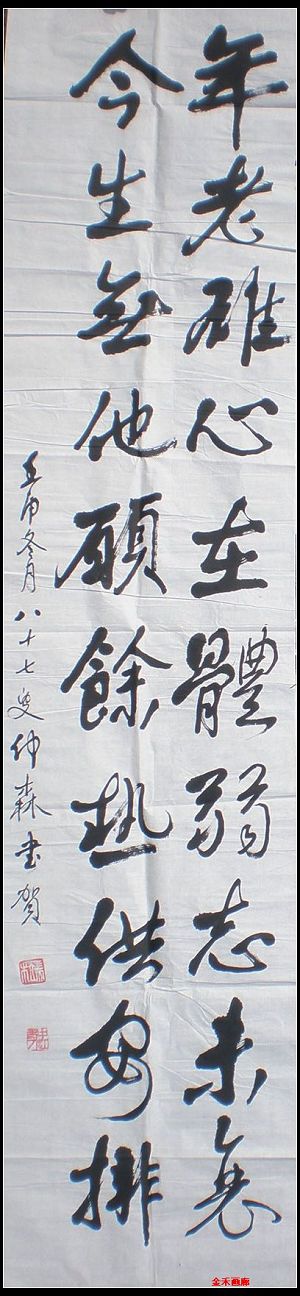 年老雄心在體弱志未衰
今生無他願餘熱供安排
壬申冬月八十七叟仲森书贺
金禾画廊